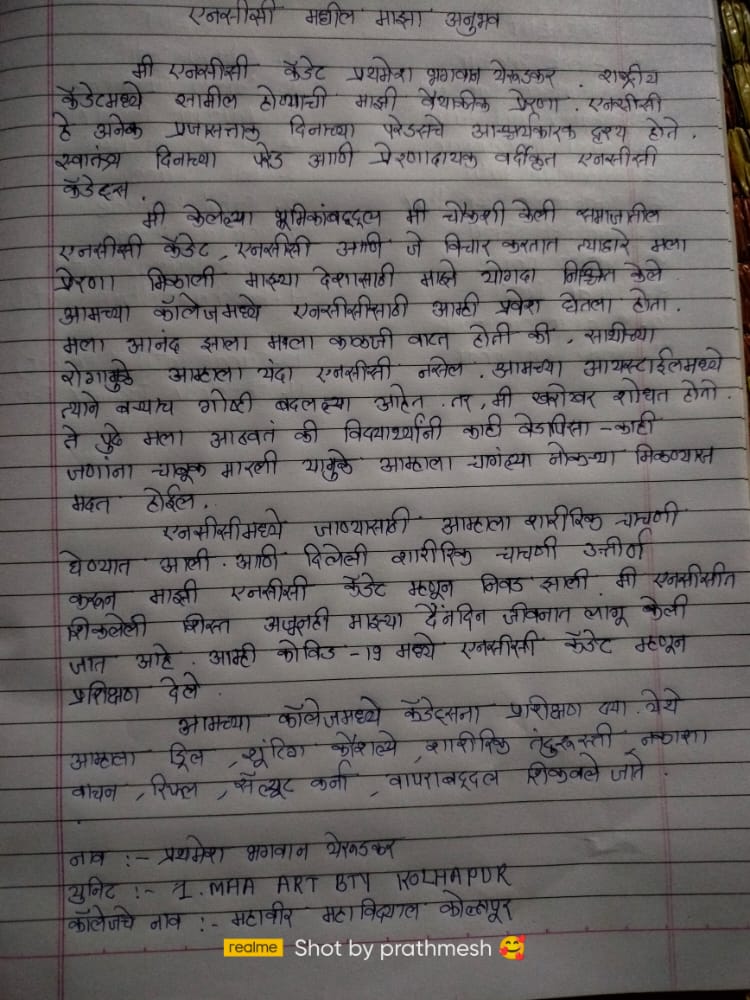 एनसीसी मधील माझा अनुभव
मी एनसीसी कॅडेट प्रथमेश भगवान येरूडकर . राष्ट्रीय
कॅडेटमध्ये सामील होण्याची माझी वैयक्तीक प्रेरणा . एनसीसी
हे अनेक प्रजासत्ताक दिनाच्या परेडसचे आश्चर्यकारक दृश्य होते .
स्वातंत्र्य दिनाच्या परेड आणि प्रेरणादायक वर्दीकृत एनसीसी
कॅडेट्स .
मी केलेल्या भूमिकांबद्दल मी चौकशी केली समाजातील
एनसीसी कॅडेट , एनसीसी आणि जे विचार करतात त्याद्वारे मला
प्रेरणा मिळाली माझ्या देशासाठी माझे योगदा निश्चित केले .
आमच्या कॉलेजमध्ये एनसीसीसाठी आम्ही प्रवेश घेतला होता .
मला आनंद झाला मला काळजी वाटत होती की , साथीच्या
रोगामुळे आम्हाला यंदा एनसीसी नसेल . आमच्या आयस्टाईलमध्ये
त्याने बऱ्याच गोष्टी बदलल्या आहेत . तर , मी खरोखर शोधत होतो .
ते पुढे मला आठवतं की विद्यार्थ्यांनी काही वेडापिसा - काही
जणांना चाबूक मारली यामुळे आम्हाला चागंल्या नोकऱ्या मिळण्यास
मदत होईल .
एनसीसीमध्ये जाण्यासाठी आम्हाला शारीरिक चाचणी
घेण्यात आली . आणि दिलेली शारीरिक चाचणी उत्तीर्ण
करून माझी एनसीसी कॅडेट म्हणून निवड झाली . मी एनसीसीत
शिकलेली शिस्त अजूनही माझ्या दैंनदिन जीवनात लागू केली
जात आहे . आम्ही कोविड - १९ मध्ये एनसीसी कॅडेट म्हणून
प्रशिक्षण देले .
आमच्या कॉलेजमध्ये कॅडेट्सना प्राशिक्षण द्या . येथे
आम्हाला ड्रिल , शूटिंग कौशल्ये , शारीरिक तंदुरूस्ती नकाशा
वाचन , रिफल , सॅल्यूट कर्ना , वापराबद्दल शिकवले जाते .
नाव :- प्रथमेश भगवान येरूडकर
युनिट :- 1. MAH ART BTY KOLHAPUR
कॉलेजचे नाव :- महावीर महाविद्याल कोल्हापूर
realme Shot by prathmesh 🥰